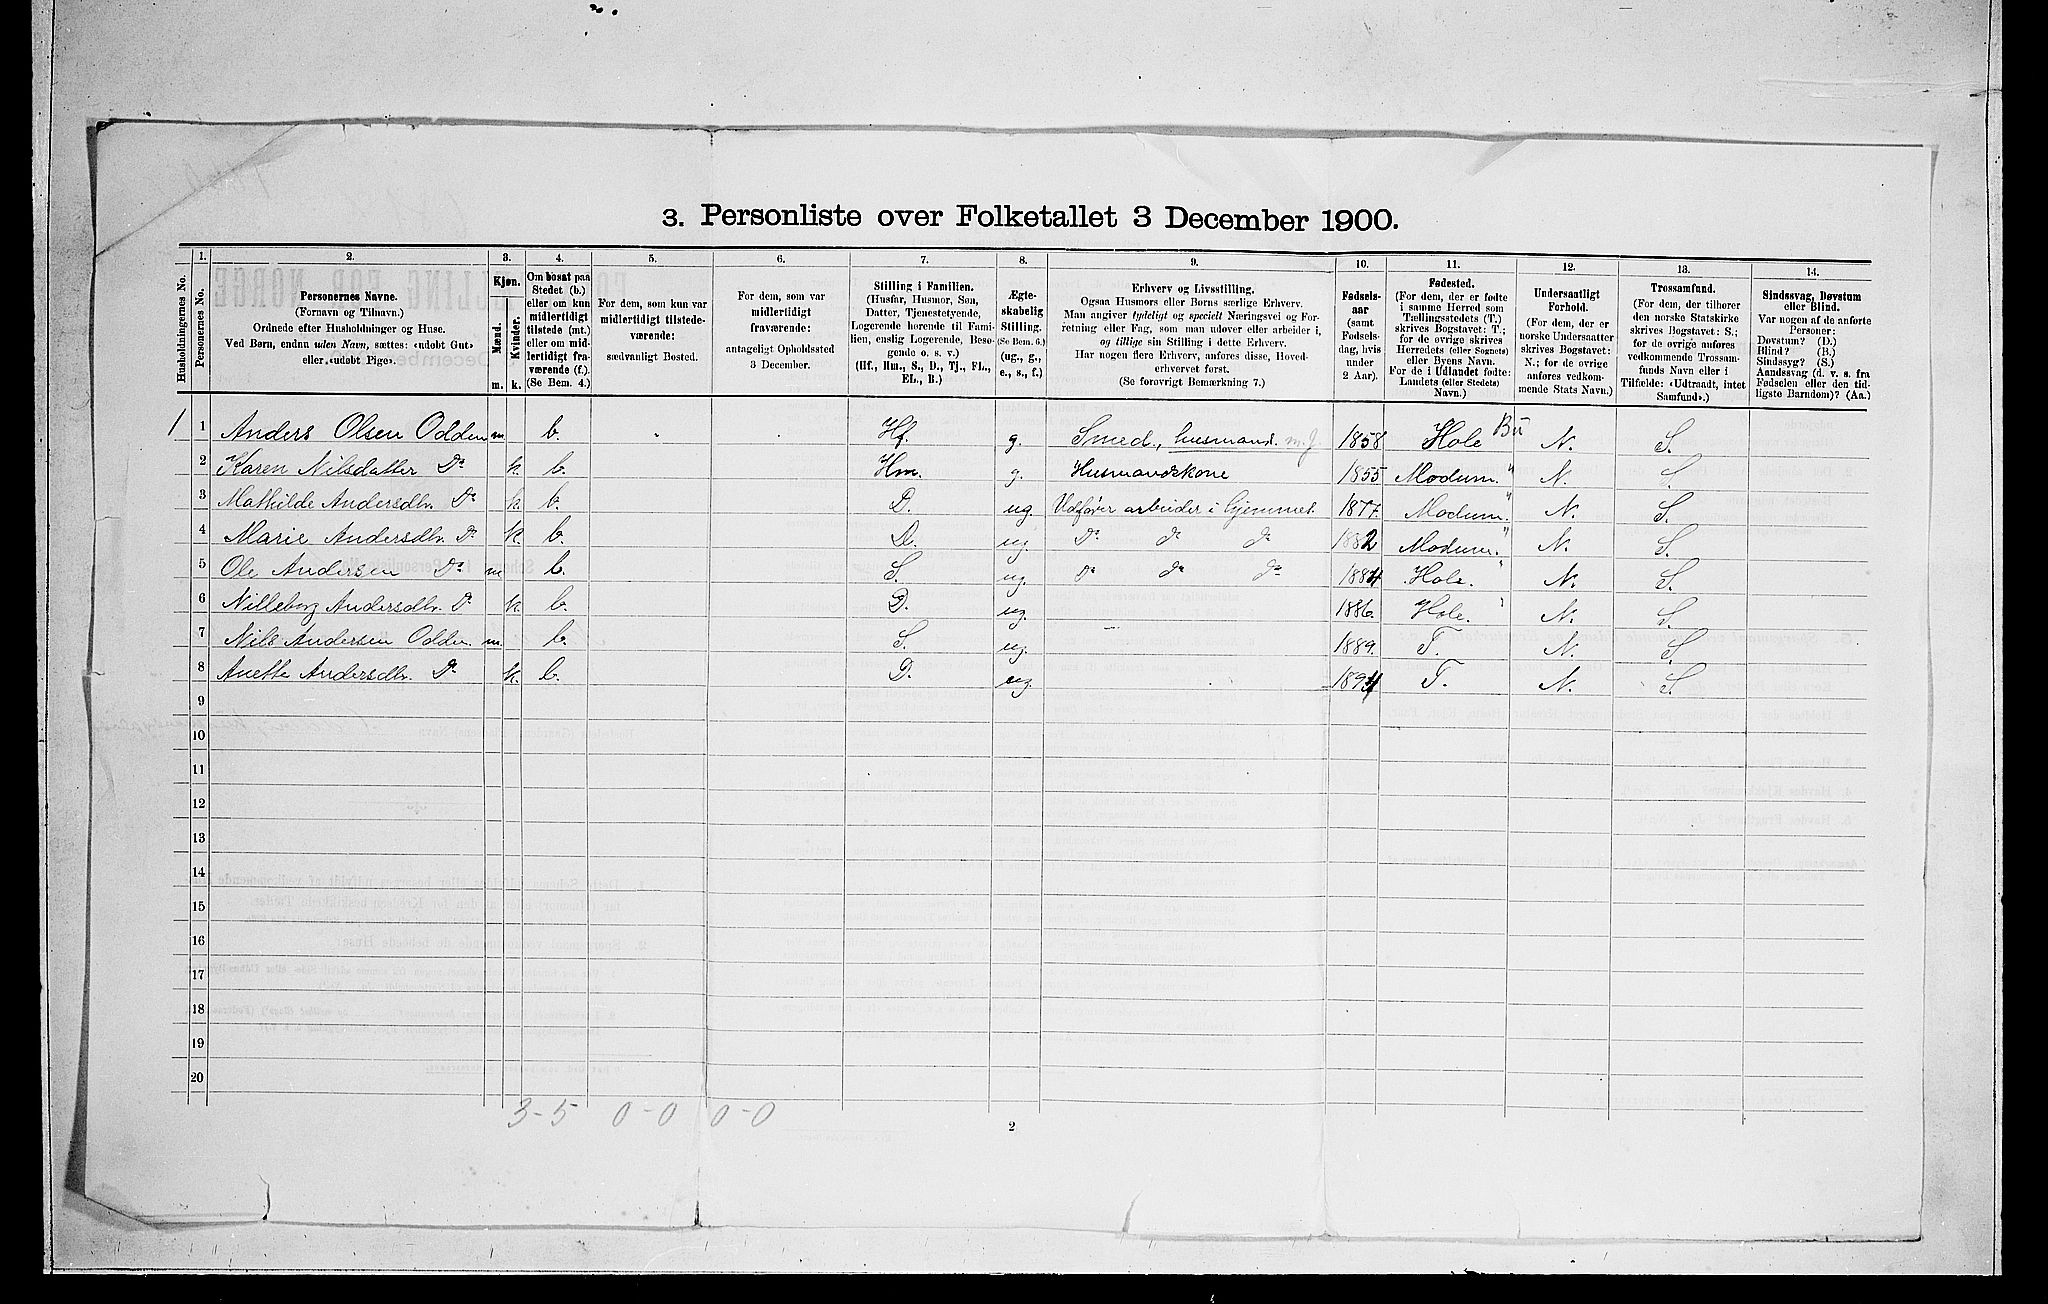 3. Personliste over Folketallet 3 December 1900.
1. 2. 3. 4. 5. 6. 7. 8. 9. 10. 11. 12. 13. 14.
Husholdningernes No.
Personernes No.
Personernes Navne.
(Fornavn og Tilnavn).
Ordnede efter Husholdninger og Huse.
Ved Børn, endnu uden Navn, sættes: «udøbt Gut»
eller «udøbt Pige».
Kjøn.
Mænd.
Kvinder.
m. k.
Om bosat paa
Stedet (b.)
eller om kun
midlertidigt
tilstede (mt.)
eller om mid-
lertidigt fra-
værende (f.)
(Se Bem. 4.)
For dem, som kun var
midlertidigt tilstede-
værende:
sædvanligt Bosted.
For dem, som var
midlertidigt
fraværende:
antageligt Opholdssted
3 December.
Stilling i Familien.
(Husfar, Husmor, Søn,
Datter, Tjenestetyende,
Logerende hørende til Fami-
lien, enslig Logerende, Besø-
gende o. s. v.)
(Hf., Hm., S., D., Tj., FL.,
EL., B.)
Ægte-
skabelig
Stilling.
(Se Bem. 6.)
(ug., g.,
e., s., f.)
Erhverv og Livsstilling.
Ogsaa Husmors eller Børns særlige Erhverv.
Man angiver tydeligt og specielt Næringsvei og For-
retning eller Fag, som man udøver eller arbeider i,
og tillige sin Stilling i dette Erhverv.
Har nogen flere Erhverv, anføres disse, Hoved-
erhvervet først.
(Se forøvrigt Bemærkning 7.)
Fødsels-
aar
(samt
Fødsels-
dag, hvis
under
2 Aar).
Fødested.
(For dem, der er fødte
i samme Herred som
Tællingsstedets (T.)
skrives Bogstavet: T.;
for de øvrige skrives
Herredets (eller Sognets)
eller Byens Navn.
For de i Udlandet fødte:
Landets (eller Stedets)
Navn.)
Undersaatligt
Forhold.
(For dem, der er
norske Undersaatter
skrives Bogstavet:
N.; for de øvrige
anføres vedkom-
mende Stats Navn.)
Trossamfund.
(For dem, der tilhører
den norske Statskirke
skrives Bogstavet: S.;
for de øvrige anføres
vedkommende Trossam-
funds Navn eller i
Tilfælde: «Udtraadt, intet
Samfund».)
Sindssvag, Døvstum
eller Blind.
Var nogen af de anførte
Personer:
Døvstum? (D.)
Blind? (B.)
Sindssyg? (S.)
Aandssvag (d. v. s. fra
Fødselen eller den tid-
ligste Barndom)? (Aa.)
1 1 Anders Olsen Odden m. b. Hf. g. Smed, husmand m. j. 1858 Hole Bu N. S.
2 Karen Nilsdatter Do k. b. Hm. g. Husmandskone 1855 Modum " N. S.
3 Mathilde Andersdtr. Do k. b. D. ug. Udfører arbeider i Hjemmet 1877. Modum " N. S.
4 Marie Andersdtr. Do k. b. D. ug. Do do do 1882 Modum " N. S.
5 Ole Andersen Do m b. S. ug. Do do do 1884 Hole. " N. S.
6 Nilleborg Andersdtr. Do k. b. D. ug. 1886. Hole. " N. S.
7 Nils Andersen Odden m. b. S. ug. 1889. T. N. S.
8 Anette Andersdtr. Do k. b. D. ug. 1894 T. N. S.
9
10
11
12
13
14
15
16
17
18
19
20
3-5 0-0 0-0
2